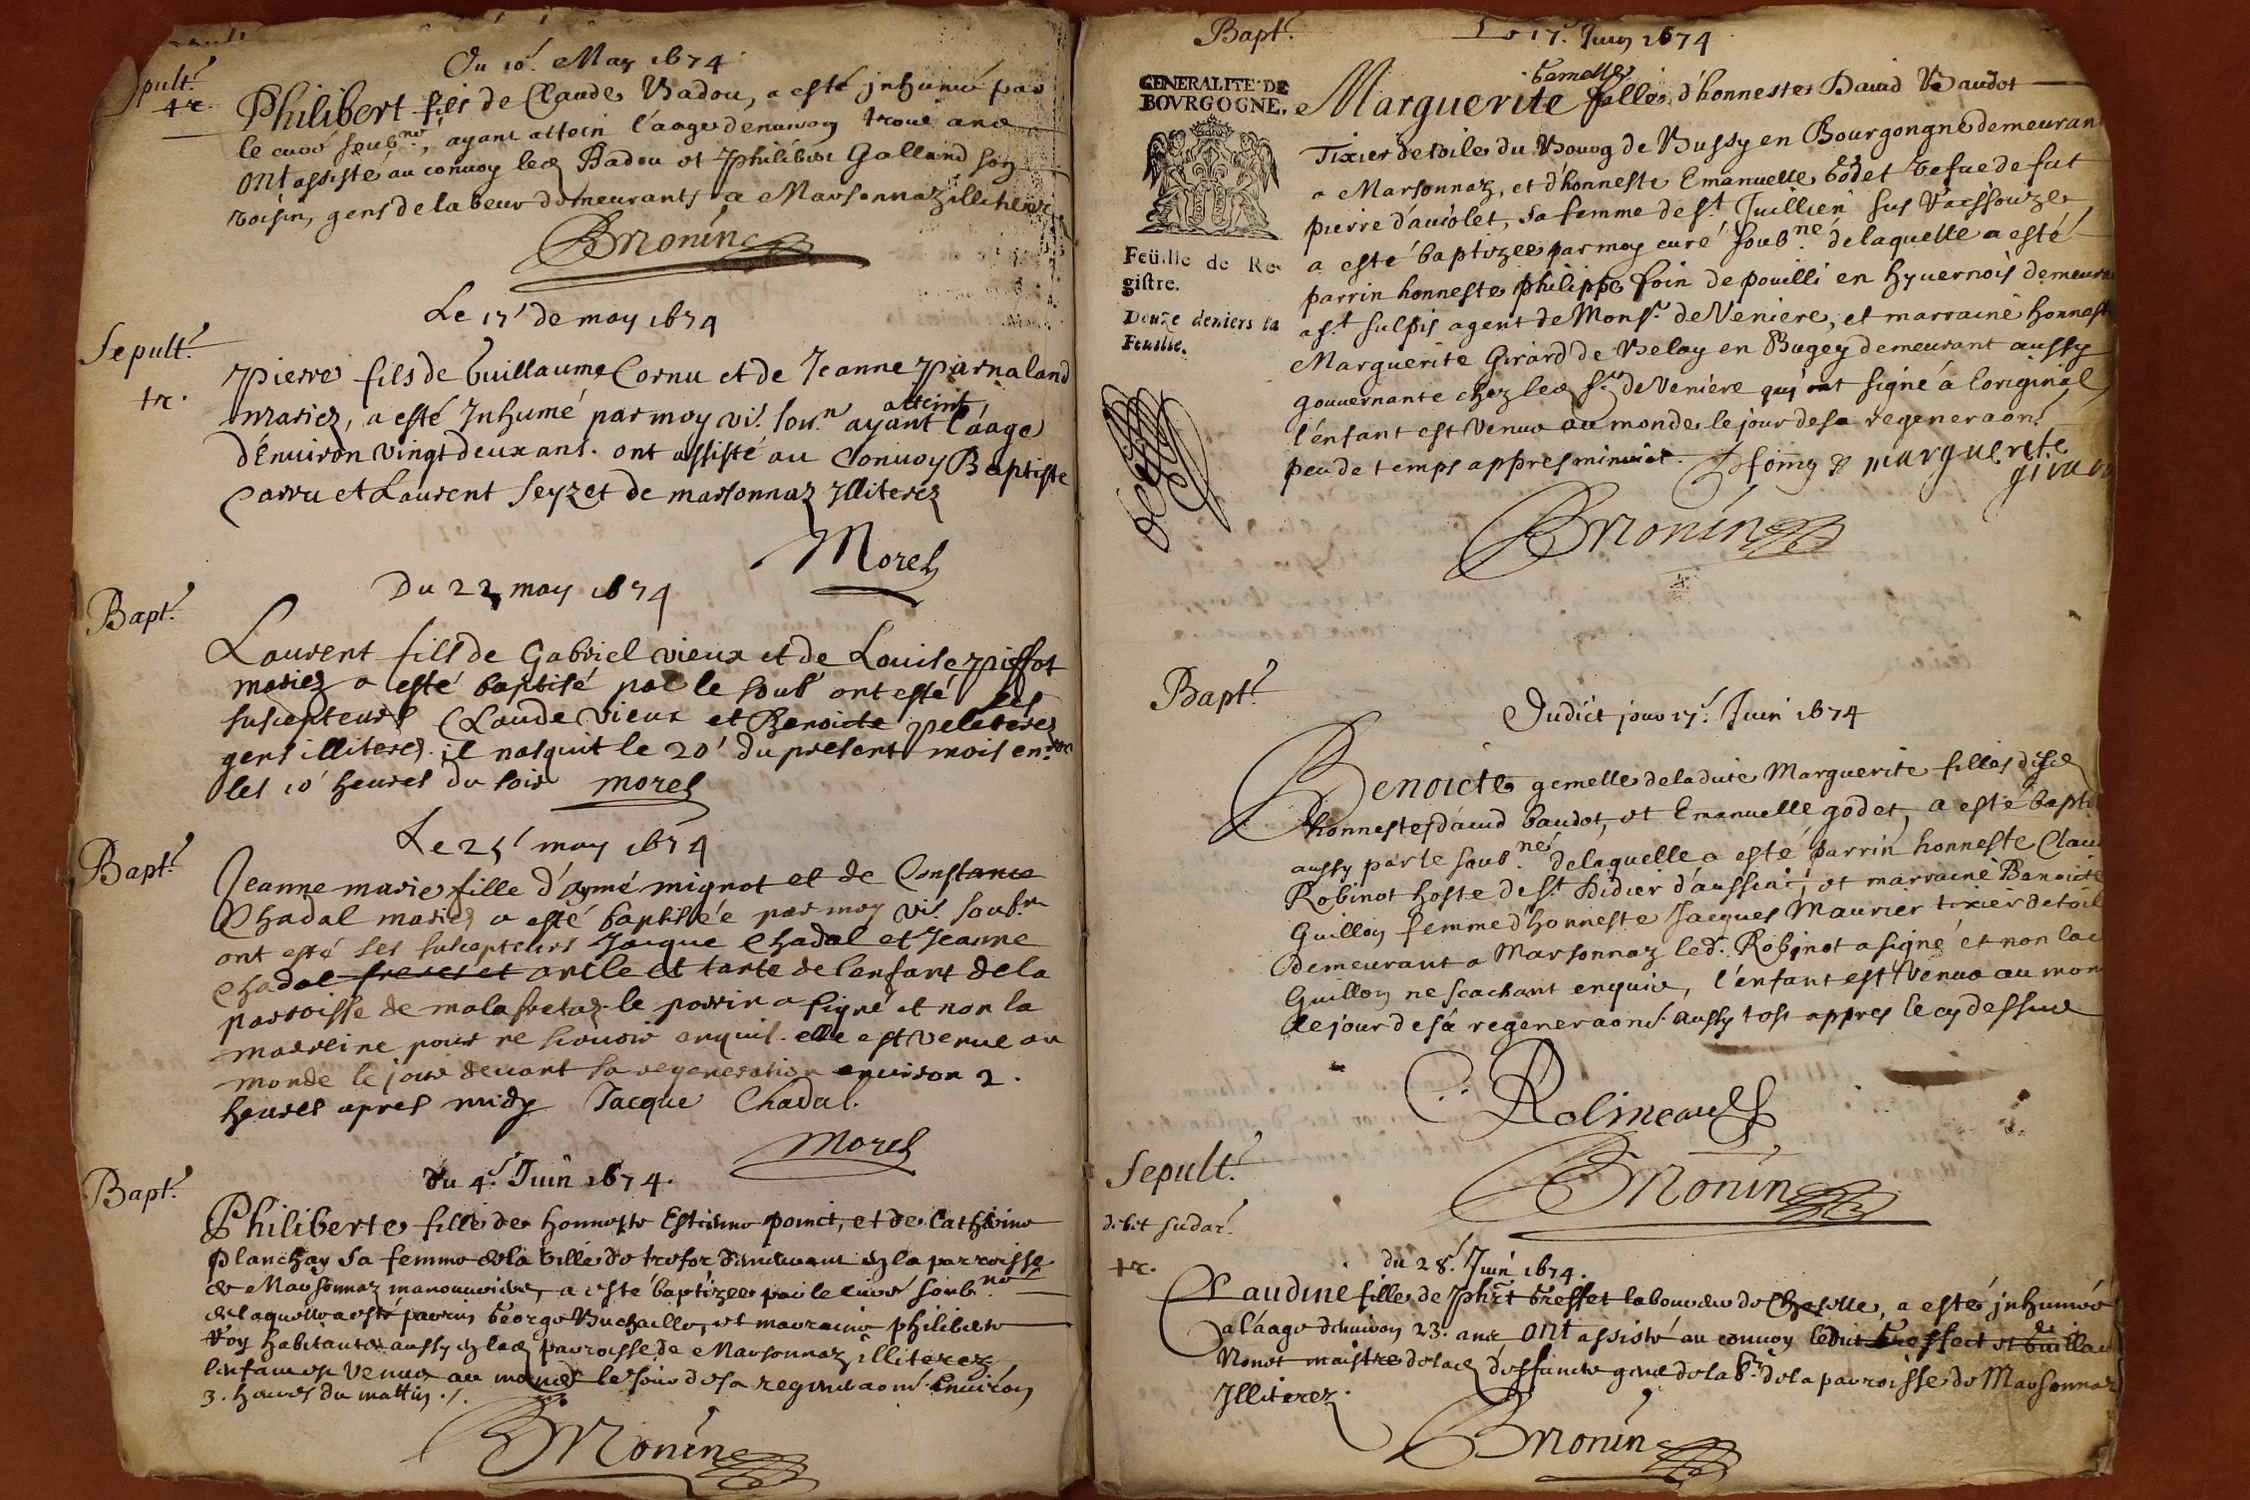 Sepult.
4 r.
Du 10. May 1674
Philibert fils de Claude Badou, a esté inhumé par
le curé soub.né, ayant attein l'aage denuiron trois ans
ont assisté au conuoy led Badou et Philibert Galland son
voisin, gens de labeur demeurants a Marsonnaz illiterez
BMonin
Sepult.
tr.
Le 17' de may 1674
Pierre fils de Guillaume Cornu et de Jeanne Parnaland
mariez, a esté Inhumé par moy vi. sous.n ayant atteint l'áage
d'Enuiron vingt deux ans. ont assisté au Conuoy Baptiste
Carru et Laurent Seyzet de marsonnaz Illiterez
Morel
Bapt.
Du 22 may 1674
Laurent fils de Gabriel vieux et de Louise Piffot
mariez a esté baptisé par le soub' ont esté ses
suscepteurs Claude Vieux et Benoicte Peleterez
gens illiterez. il nasquit le 20' du present mois en.ron
les 10' heures du soir morel
Bapt.
Le 25' may 1674
Jeanne marie fille d'aymé mignot et de Constance
Chadal mariez a esté baptisée par moy vi. soub.n
ont esté ses suscepteurs Jacque Chadal et Jeanne
Chadal freres et oncle et tante de lenfant de la
parroisse de malafretaz. le parrin a signé et non la
marreine pour ne scavoir enquis. elle est venue au
monde le jour deuant sa regeneration enuiron 2.
heures apres midy Jacque Chadal.
Morel
Bapt.
du 4. Juin 1674.
Philiberte fille de honneste Estienne poinct, et de Catherine
Planchay sa femme de la ville de trefor demeurant en la parroisse
de Marsonnaz manouuriere, a esté baptizee par le curé soub.né
de laquelle a esté parrin George Buchaille, et marraine philiberte
Voy habitants aussy en lad parroisse de Marsonnaz illiterez
lenfant est venue au monde le jour de sa regeneraon. Enuiron
3. heures du mattin ./.
BMonin
Bapt.
Le 17. Juin 1674
GENERALITE DE
BOVRGOGNE.
Feüille de Re-
gistre.
Douze deniers la
Feuille.
gemelle
Marguerite fille d'honnestes Dauid Baudot
Tixier de toile du Bourg de Bussy en Bourgongne demeurant
a Marsonnaz, et d'honneste Emanuelle Godet vefue de fut
pierre dauiolet, sa femme de S.t Juillien sus Vaissouze
a esté baptizee par moy curé soub.né de laquelle a esté
parrin honneste philippe foin de pouilli en hyuernois demeurant
a S.t Sulpis agent de Mons.r de Veniere, et marraine honneste
Marguerite Girard de Belay en Bugey demeurant aussy
gouuernante chez led S.r de Veniere qui ont signé a l'original
l'enfant est venue au monde le jour de sa regeneraon.
peu de temps appres minuict. P foing marguerite
girard
BMonin
Bapt.
Dudict jour 17. Juin 1674
Benoicte gemelle de la dicte Marguerite fille
honnestes dauid baudot, et Emanuelle godet, a esté bapt
aussy par le soub.né de laquelle a esté parrin honneste Claude
Robinot hoste de S.t Didier d'aussiat, et marraine Benoicte
Guillon femme d'honneste Jacques Maurier tixier de toile
demeurant a Marsonnaz led. Robinot a signé et non lad
Guillon ne scachant enquise, l'enfant est venue au monde
le jour de sa regeneraon. aussy tost appres le cy dessus
BMonin
Sepult.
debet sudar.
tr.
du 28. Juin 1674.
Claudine fille de Phi.rt Greffet laboureur de Cheselle, a esté inhumée
a l'aage denuiron 23. ans ont assisté au conuoy ledict Greffet et Guillau.de
Nonot maistre de lad deffuncte gens de lab.r de la parroisse de Marsonnaz
Illiterez.
BMonin